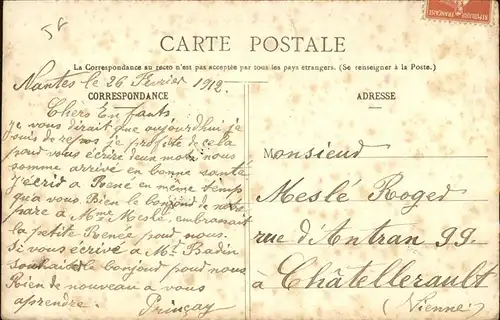 58
CARTE POSTALE
La Correspondance au recto n'est pas acceptée par tous les pays étrangers. (Se renseigner à la Poste.)
Nantes le 26 Fevrier 1912.
CORRESPONDANCE
Chers Enfants
je vous dirait que aujourdhui je
suis de repos je profite de cela
pour vous écrire deux mots nous
somme arrivé en bonne santé
j'écrid a René en même temp
qu'a vous. Bien le bonjour de notre
part a Mme Meslé, embrassait
la petite Renée pour nous.
Si vous écrivé a Mr Badin
souhaité le bonjour pour nous
Rien de nouveau a vous
aprendre. Prinçay
ADRESSE
Monsieur
Meslé Roger
rue d'Antran 99.
à Châtellerault
(Vienne)